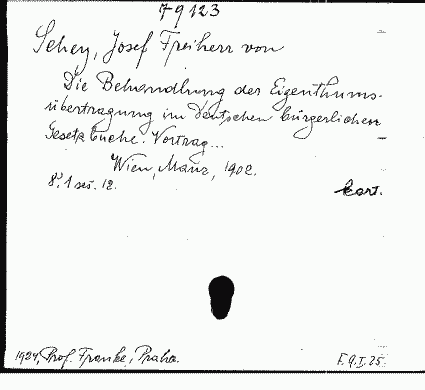 79123
Schey, Josef Freiherr von
Die Behandlung des Eigenthums-
übertragung im deutschen bürgerlichen
Gesetzbuche. Vortrag...
Wien, Manz, 1902.
8°. 1 seš. 12.
kart.
1924, Prof. Franke, Praha.
F.9.I.25.